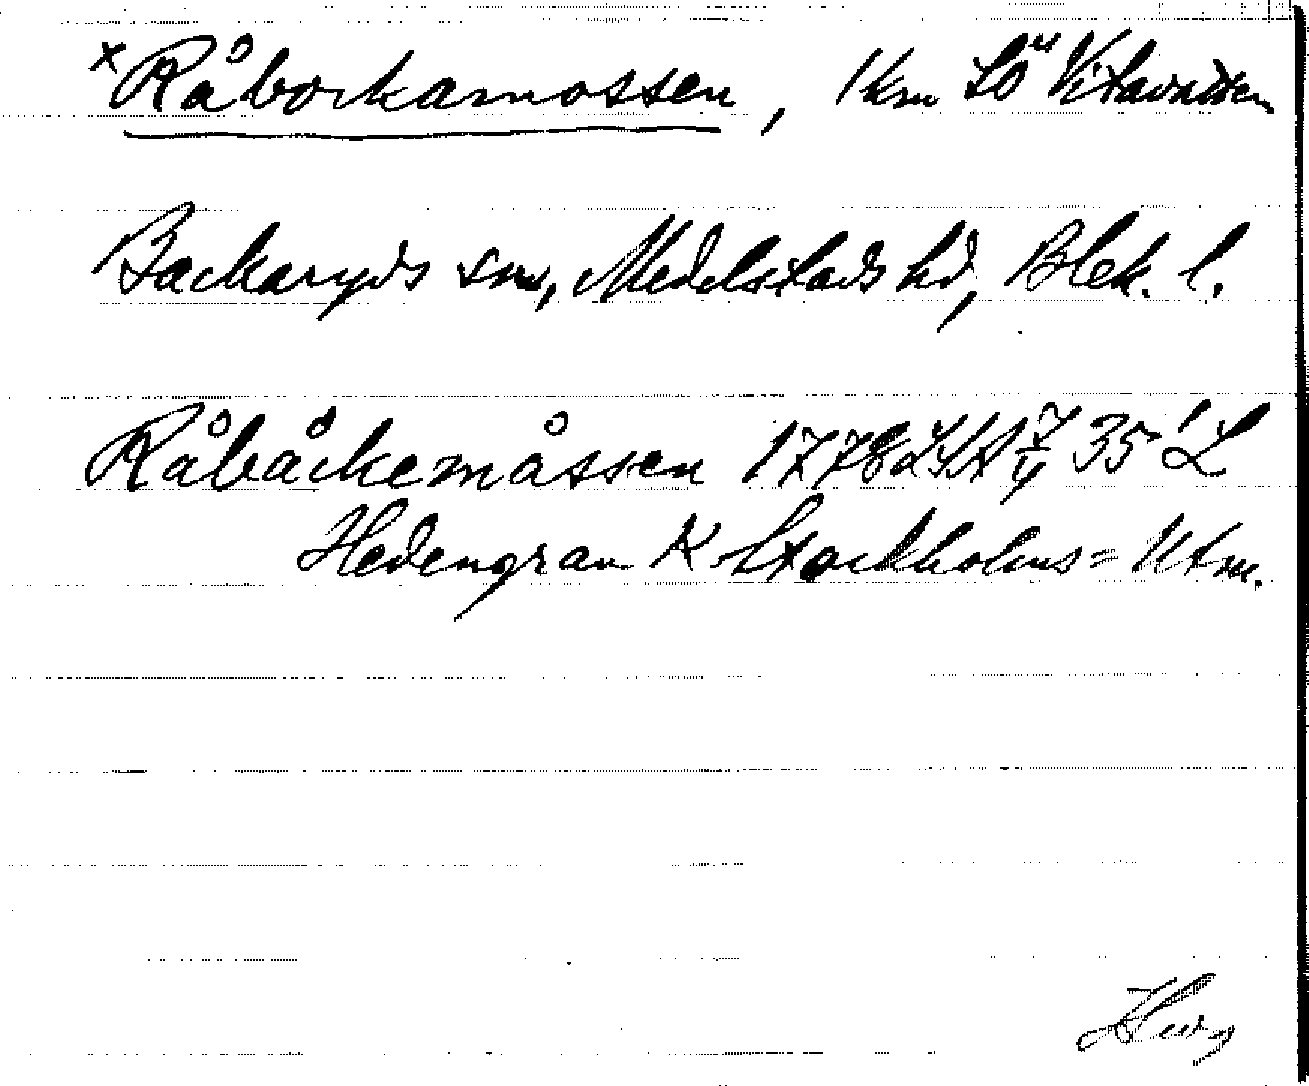 x Råborkamossen, 1 km SÖ Vitavatten
Backaryds sn, Medelstads hd, Blek. l.
Råbåckemåssen 1778 LSA 35 L
Hedengran K Stockholms= Utm.